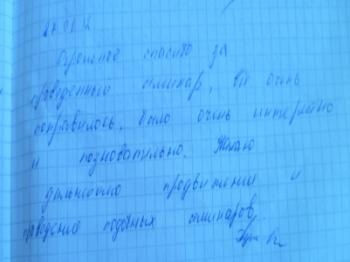 Огромное спасибо за
проведенный семинар, всё очень
понравилось, было очень интересно
и познавательно. Желаю
дальнейшего продвижения и
проведение подобных семинаров.